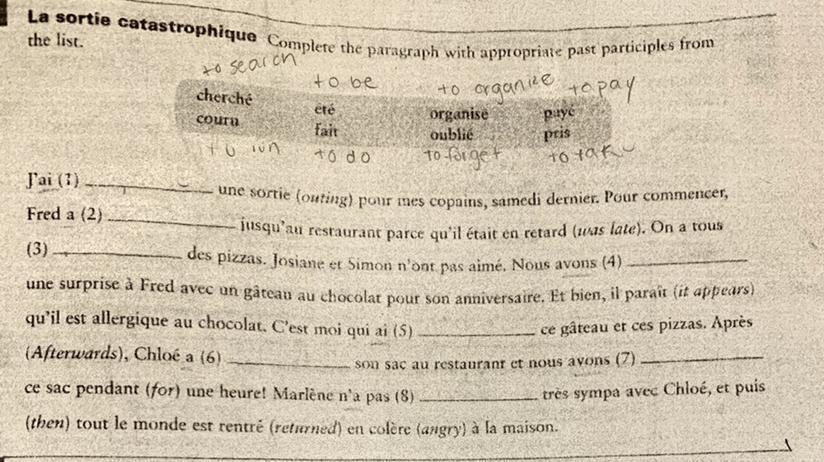 La sortie catastrophique Complete the paragraph with appropriate past participles from
the list.
to search to be to organize to pay
cherché été organisé payé
couru fait oublié pris
to run to do to forget to take
J'ai (1) ____________ une sortie (outing) pour mes copains, samedi dernier. Pour commencer,
Fred a (2) ____________ jusqu'au restaurant parce qu'il était en retard (was late). On a tous
(3) ____________ des pizzas. Josiane et Simon n'ont pas aimé. Nous avons (4) ____________
une surprise à Fred avec un gâteau au chocolat pour son anniversaire. Et bien, il paraît (it appears)
qu'il est allergique au chocolat. C'est moi qui ai (5) ____________ ce gâteau et ces pizzas. Après
(Afterwards), Chloé a (6) ____________ son sac au restaurant et nous avons (7) ____________
ce sac pendant (for) une heure! Marlène n'a pas (8) ____________ très sympa avec Chloé, et puis
(then) tout le monde est rentré (returned) en colère (angry) à la maison.